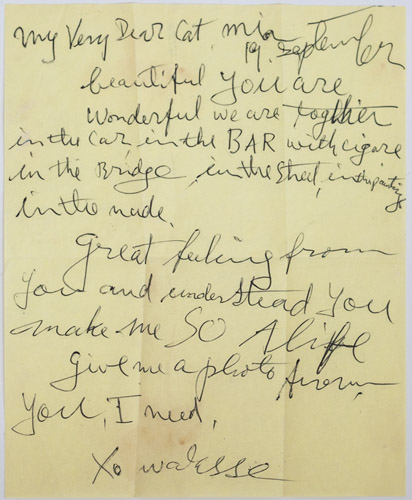 My Very Dear Cat, mia
19. September
beautiful You are
Wonderful we are together
in the car, in the BAR with cigare
in the Bridge, in the Street, in the painting
in the nude.
Great feeling from
You and understead You
make me SO Alife
Give me a photo from
You, I need,
Xo walesse